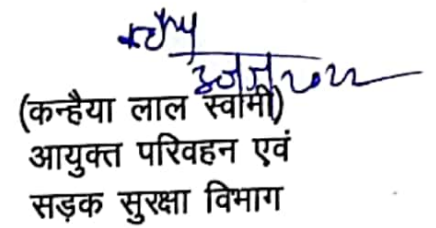 (कन्हैया लाल स्वामी)
आयुक्त परिवहन एवं
सड़क सुरक्षा विभाग